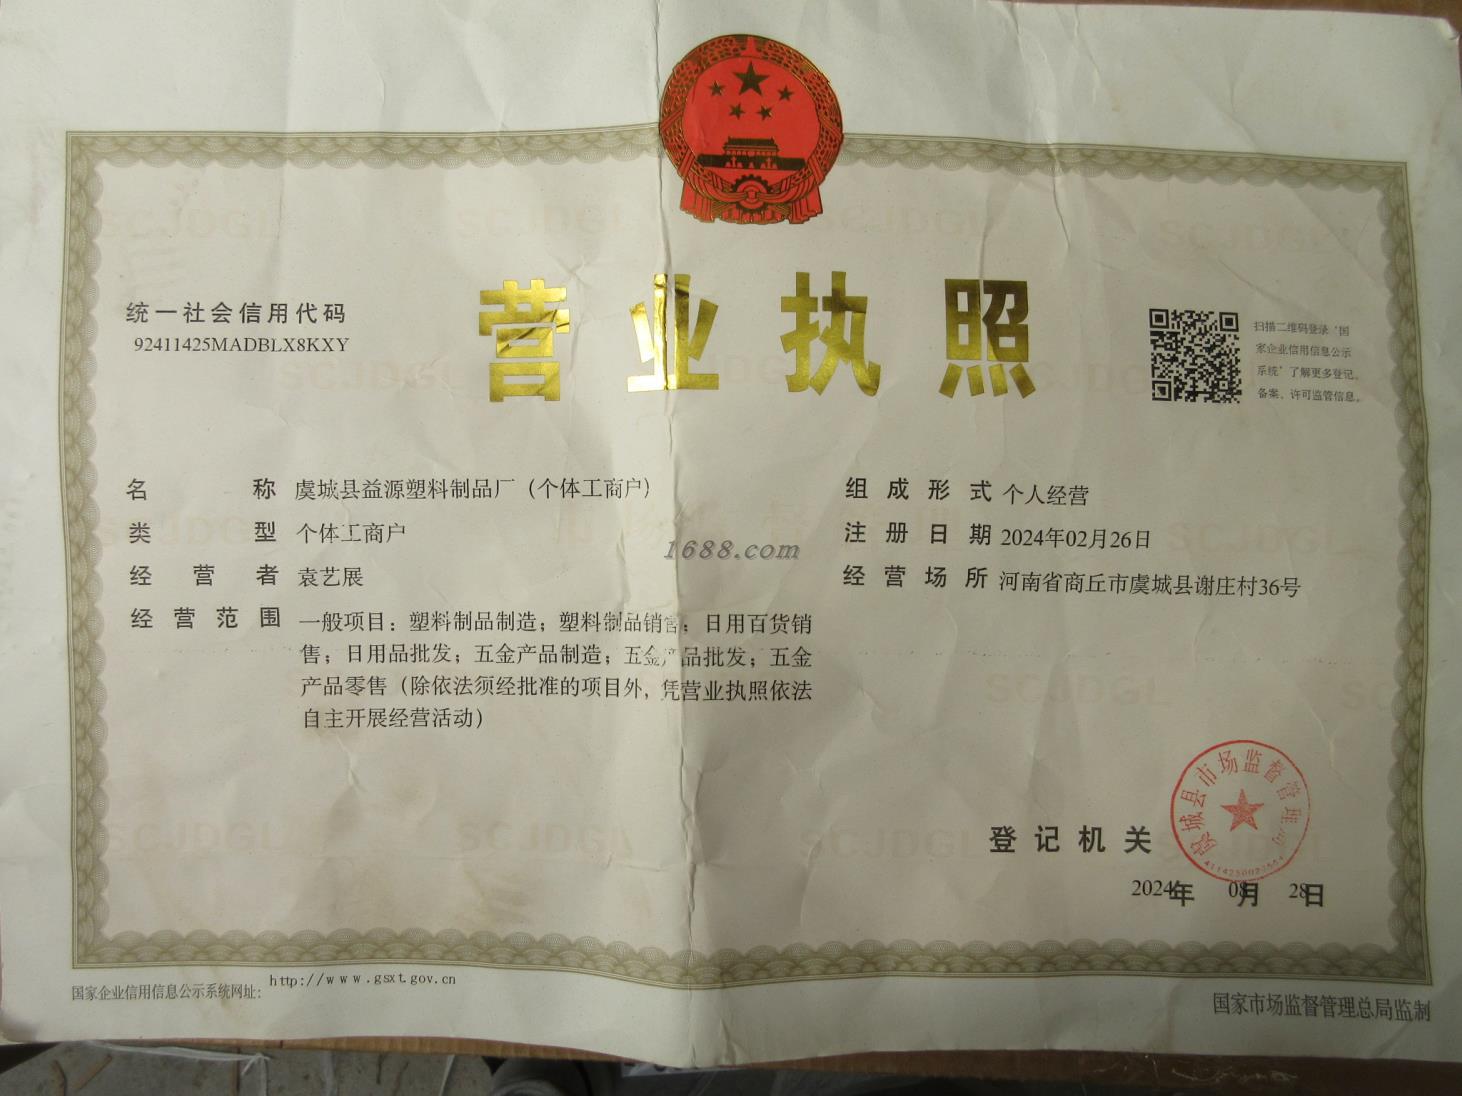 营业执照
统一社会信用代码
92411425MADBLX8KXY
扫描二维码登录‘国
家企业信用信息公示
系统’了解更多登记、
备案、许可监管信息。
名称 虞城县益源塑料制品厂（个体工商户）
类型 个体工商户
经营者 袁艺展
经营范围 一般项目：塑料制品制造；塑料制品销售；日用百货销
售；日用品批发；五金产品制造；五金产品批发；五金
产品零售（除依法须经批准的项目外，凭营业执照依法
自主开展经营活动）
组成形式 个人经营
注册日期 2024年02月26日
经营场所 河南省商丘市虞城县谢庄村36号
1688.com
登记机关
虞城县市场监督管理局
2024年 08月 28日
国家企业信用信息公示系统网址：http://www.gsxt.gov.cn
国家市场监督管理总局监制